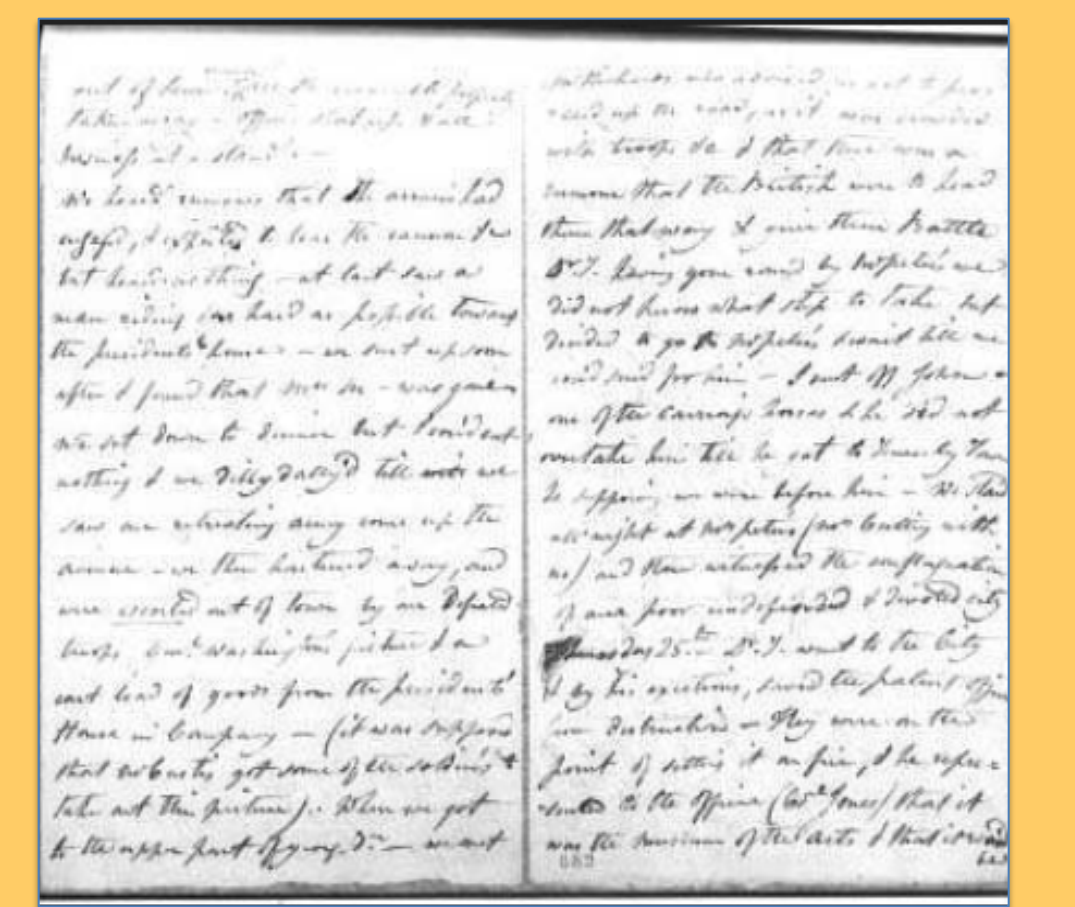 out of town
taken away
business at a stand
We heard rumours that the armies had
engaged, & expected to hear the cannon &c
but heard nothing - at last saw a
man riding as hard as possible toward
the presidents house - we went up soon
after & found that Mrs M - was gone
we sat down to dinner but I could eat
nothing & we Dilly Dally'd till we
saw our retreating army come up the
avenue - we then hastened away, and
were escorted out of town by our Defeated
troops Genl. Washington's picture & a
cart load of goods from the presidents
House in Company - (it was supposed
that got some of the soldiers to
take out this picture). When we got
to the upper part of - we met
advised not to pro-
ceed up the road, as it was crowded
with troops &c & that there was a
rumour that the British were to head
them that way & give them Battle
Dr. T. having gone round by we
did not know what step to take but
decided to go to & wait till we
could send for him - I sent off John
one of the carriage horses & he did not
overtake him till he got to
supposing we were before him - We staid
all night at Mrs peters (Mrs with
us) and there witnessed the conflagration
of our poor undefended & devoted city
Thursday 25th Dr. T. went to the City
& by his exertions, saved the patent office
from destruction - They were on the
point of setting it on fire, & he repre=
sented to the officer (Col. Jones) that it
was the museum of the arts & that it would
682
be a